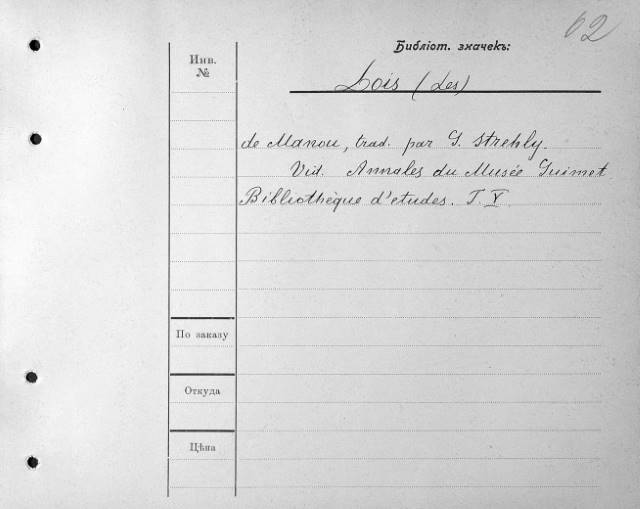 62
Библіот. значекъ:
Инв.
№
Lois (Les)
de Manou, trad. par G. Strehly.
Vid. Annales du Musée Guimet
Bibliothèque d'etudes. T. V.
По заказу
Откуда
Цѣна